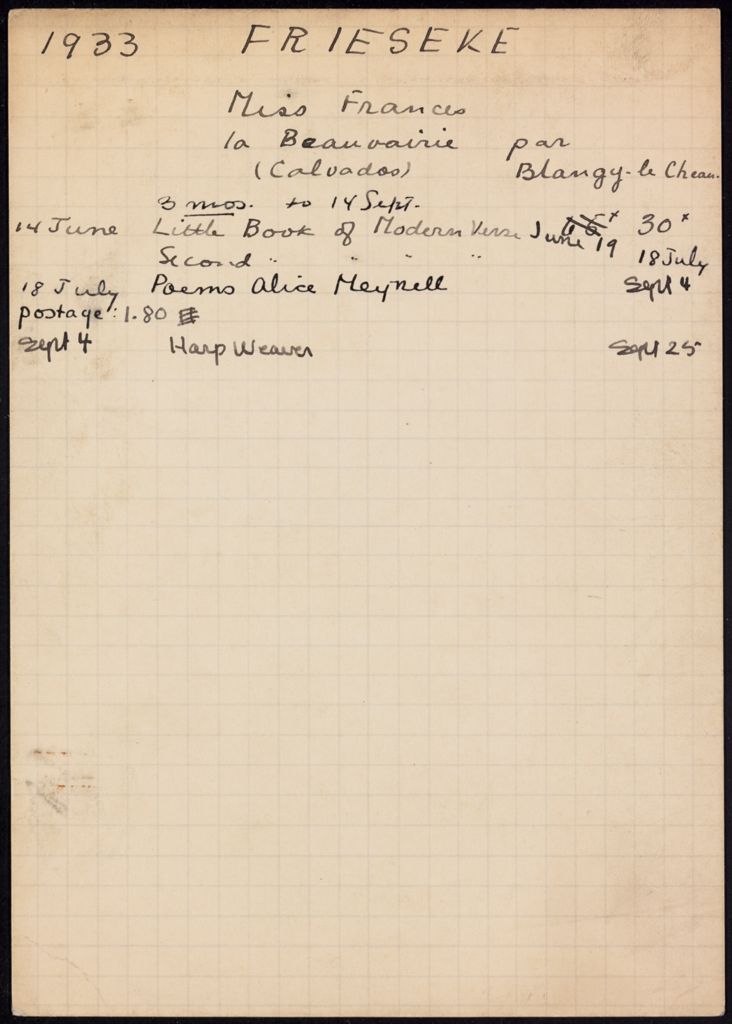 1933 FRIESEKE
Miss Frances
la Beauvairie par
(Calvados) Blangy-le Cheau.
3 mos. to 14 Sept.
14 June Little Book of Modern Verse June 19 30x
Second " " " " 18 July
18 July Poems Alice Meynell Sept 4
postage: 1.80
Sept 4 Harp Weaver Sept 25